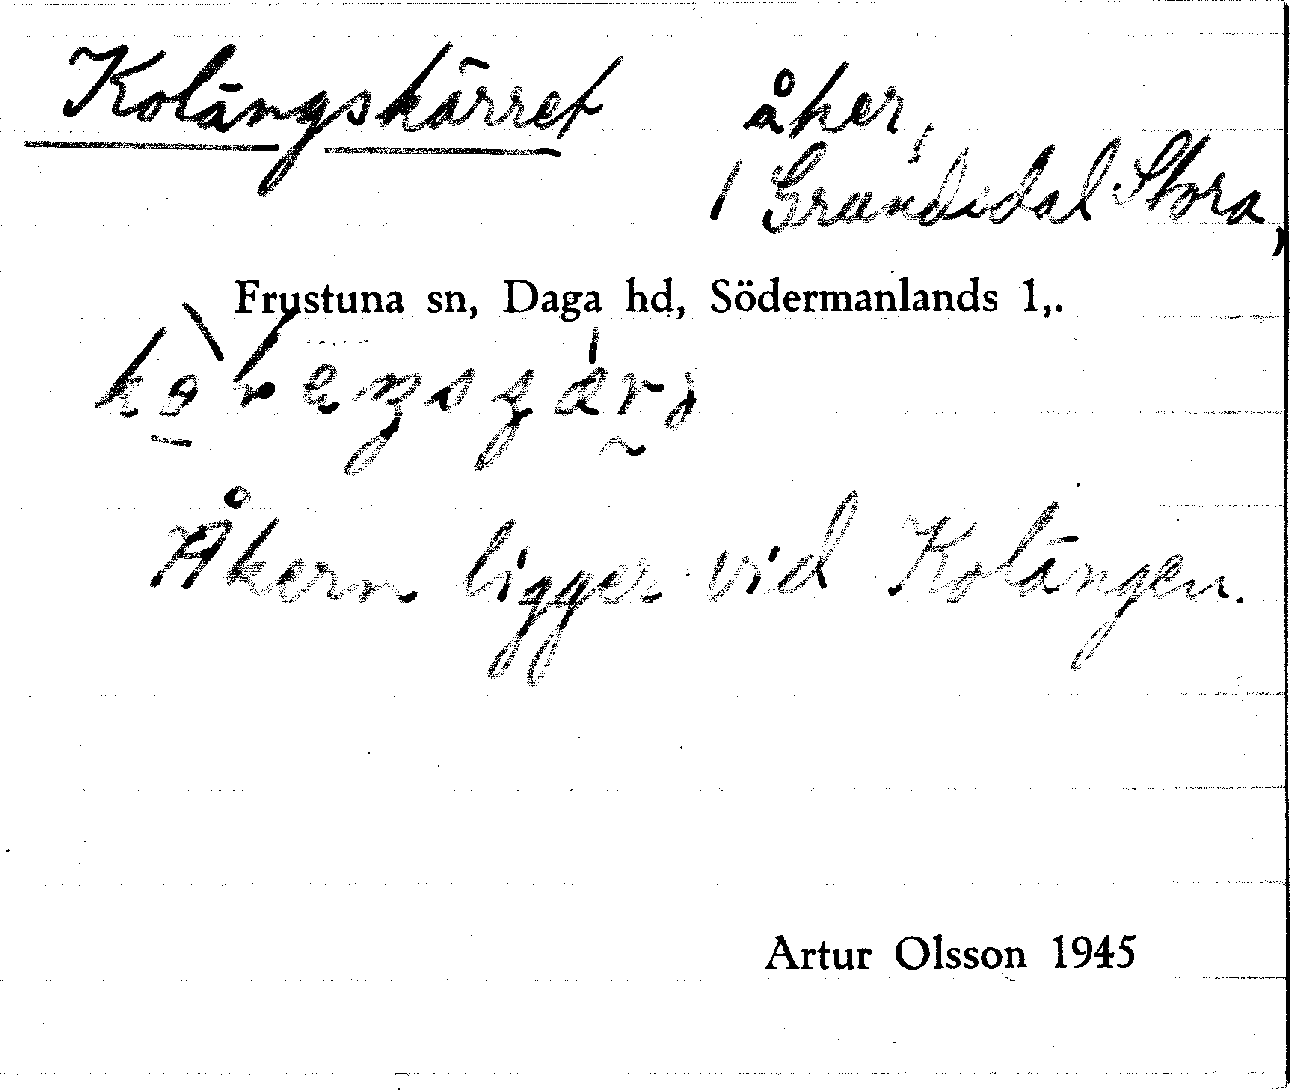 Kolängskärret åker,
/ Grandsdal Stora,
Frustuna sn, Daga hd, Södermanlands l,.
Åkern ligger vid Kolängen.
Artur Olsson 1945